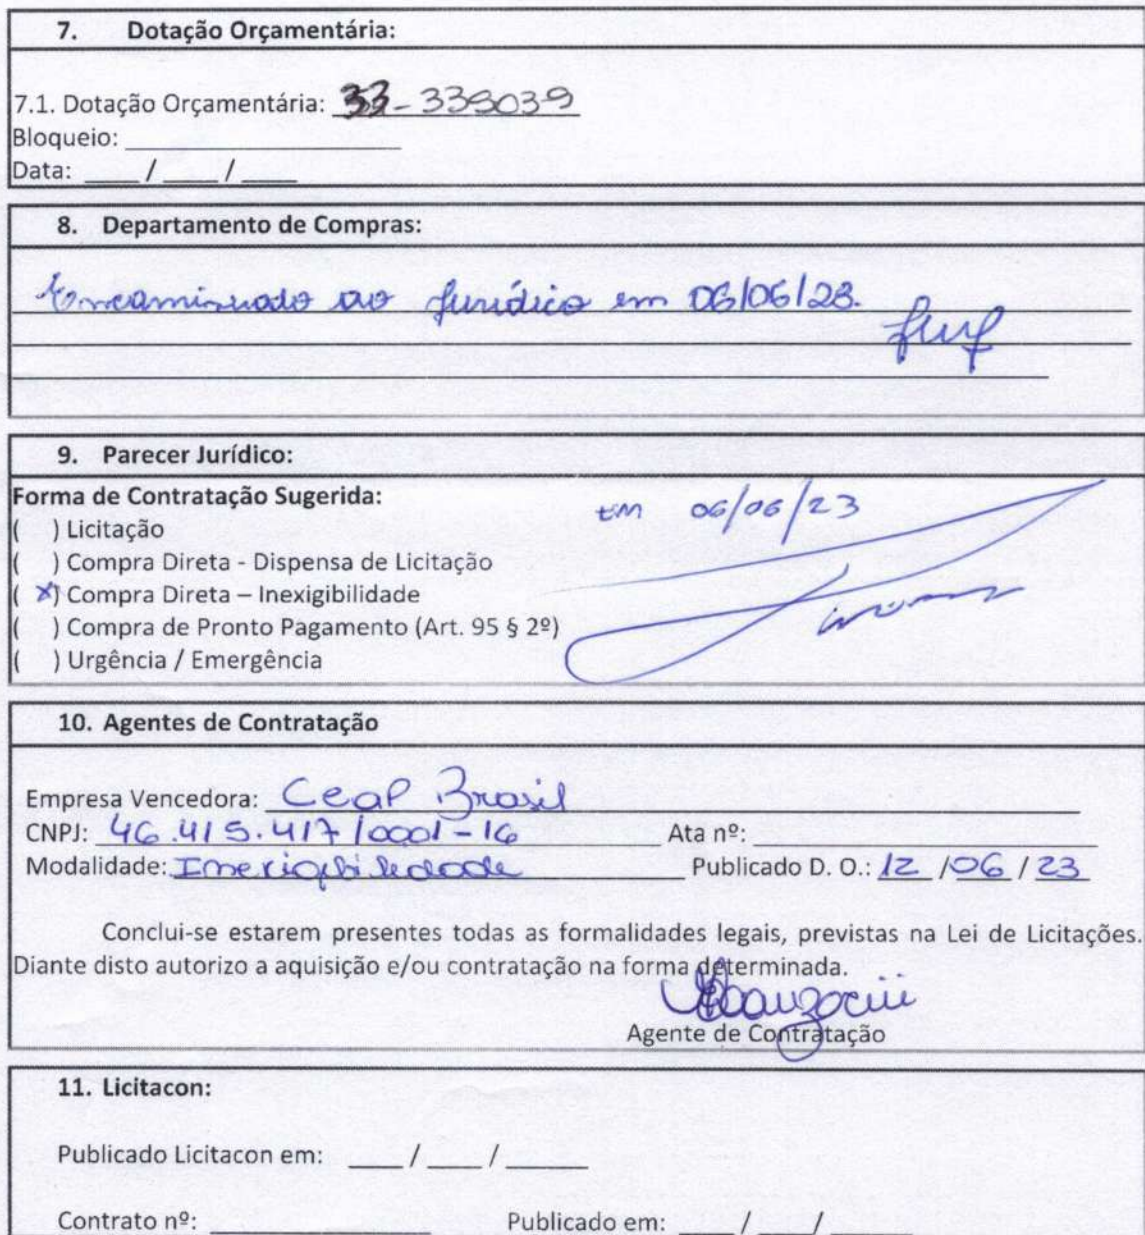 7. Dotação Orçamentária:
7.1. Dotação Orçamentária: 33-339039
Bloqueio: ____________________
Data: ____ / ____ / ____
8. Departamento de Compras:
Encaminhado ao Jurídico em 06/06/23.
9. Parecer Jurídico:
Forma de Contratação Sugerida:
EM 06/06/23
( ) Licitação
( ) Compra Direta - Dispensa de Licitação
( X) Compra Direta – Inexigibilidade
( ) Compra de Pronto Pagamento (Art. 95 § 2º)
( ) Urgência / Emergência
10. Agentes de Contratação
Empresa Vencedora: Ceap Brasil
CNPJ: 46.415.417/0001-16 Ata nº: ____________________
Modalidade: Inexigibilidade Publicado D. O.: 12 /06 / 23
Conclui-se estarem presentes todas as formalidades legais, previstas na Lei de Licitações.
Diante disto autorizo a aquisição e/ou contratação na forma determinada.
Agente de Contratação
11. Licitacon:
Publicado Licitacon em: ____ / ____ / ______
Contrato nº: ________________ Publicado em: ____ / ____ / ______